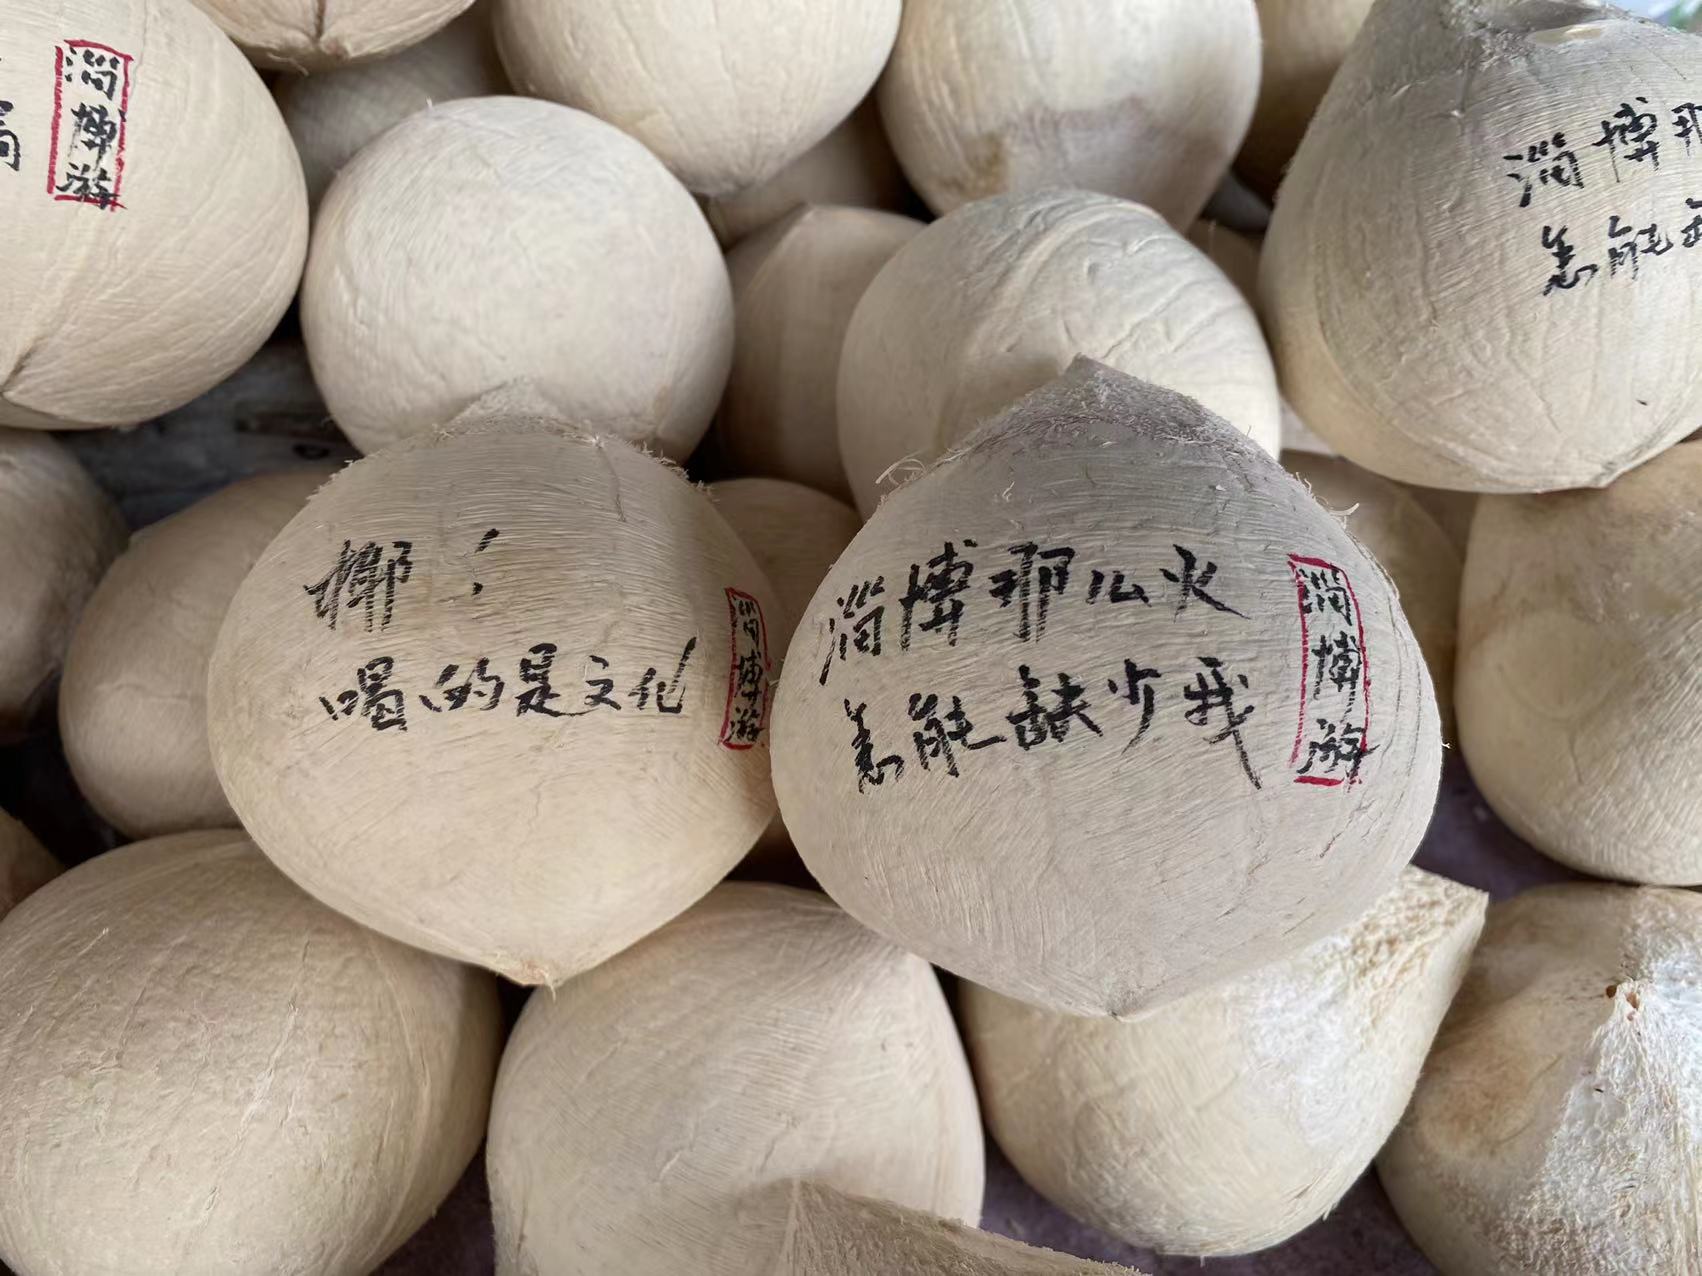 淄博游
淄博那
怎能
椰！
喝的是文化
淄博游
淄博那么火
怎能缺少我
淄博游